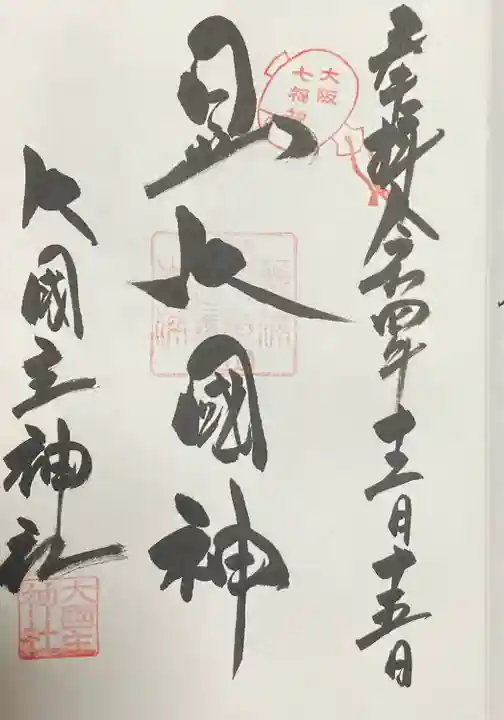 奉拜 令和四年十二月十五日
大阪
七福神
日出大國神
大國主神社
大國主
神社